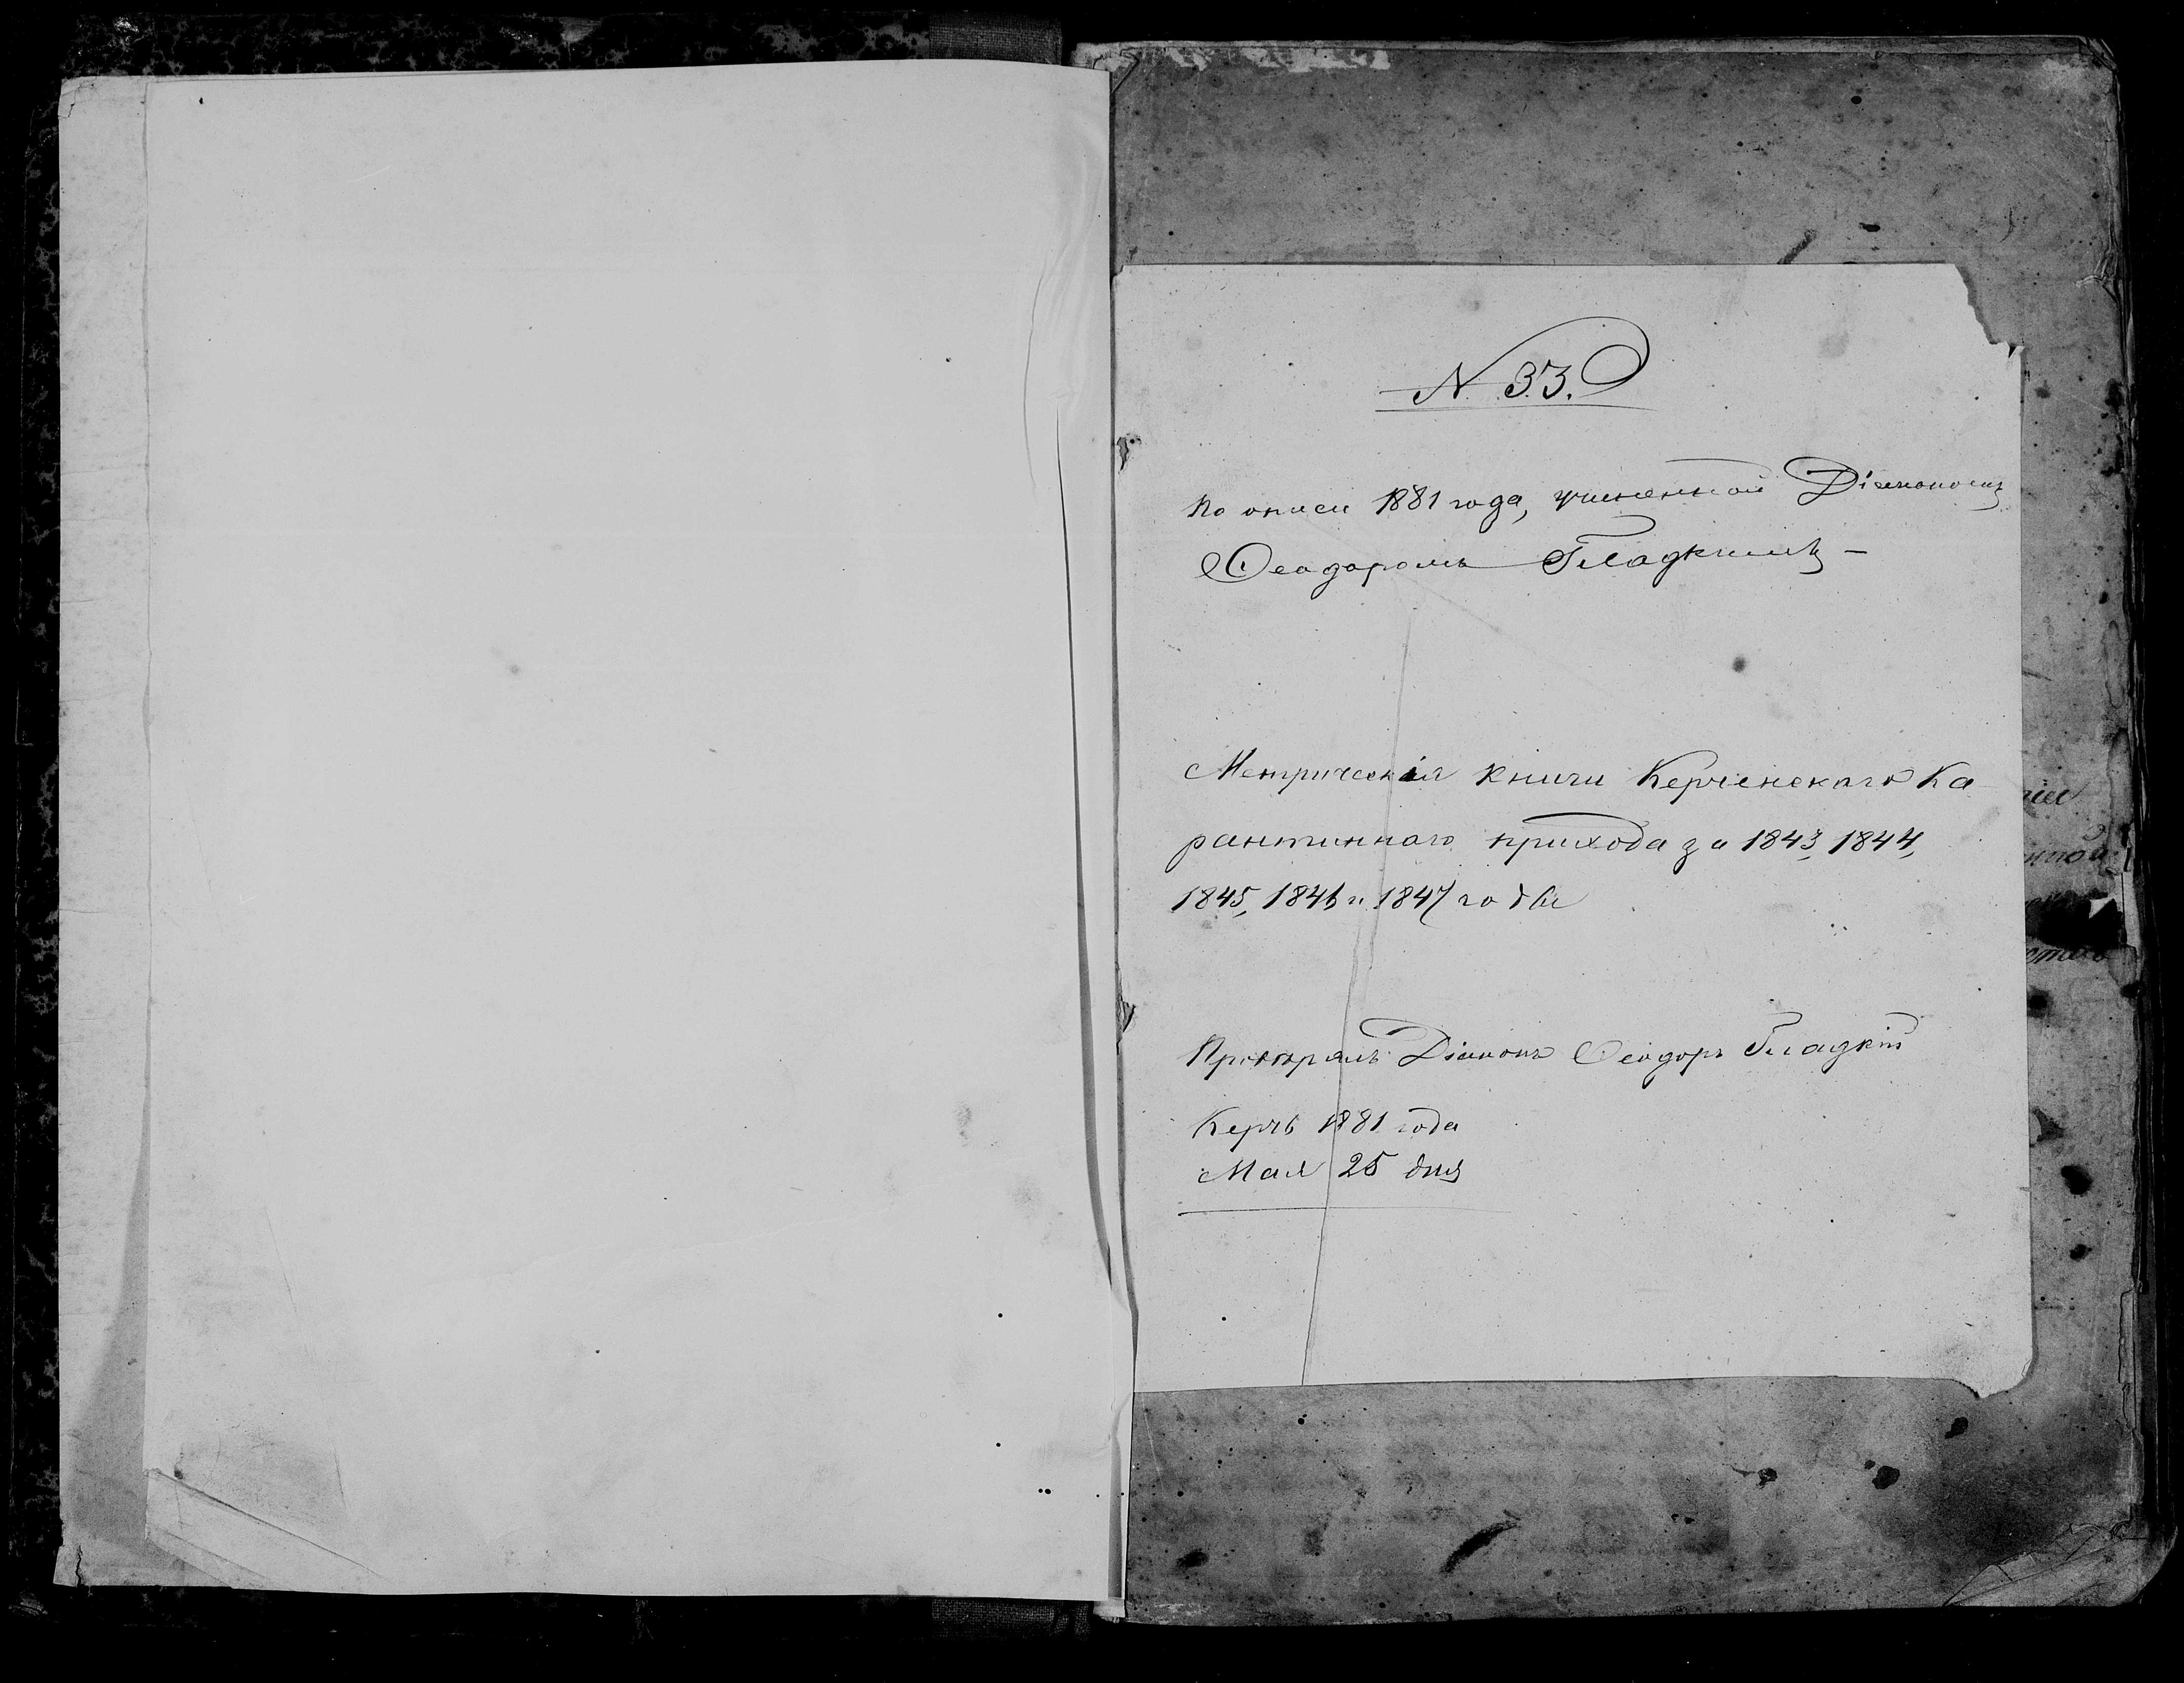 N. 33.
По описи 1881 года, учиненной Діакономъ
Ѳеодоромъ Гладкимъ –
Метрическія книги Керченскаго Ка
рантиннаго прихода за 1843, 1844,
1845, 1846 и 1847 годы
Діаконъ Ѳеодоръ Гладкій
Керчь 1881 года
Мая 25 дня